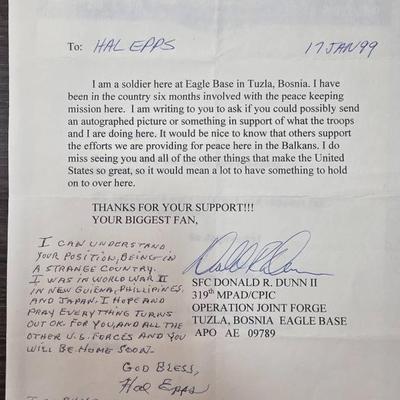 To: HAL EPPS 17 JAN 99
I am a soldier here at Eagle Base in Tuzla, Bosnia. I have
been in the country six months involved with the peace keeping
mission here. I am writing to you to ask if you could possibly send
an autographed picture or something in support of what the troops
and I are doing here. It would be nice to know that others support
the efforts we are providing for peace here in the Balkans. I do
miss seeing you and all of the other things that make the United
States so great, so it would mean a lot to have something to hold
on to over here.
THANKS FOR YOUR SUPPORT!!!
YOUR BIGGEST FAN,
Donald R. Dunn
SFC DONALD R. DUNN II
319th MPAD/CPIC
OPERATION JOINT FORGE
TUZLA, BOSNIA EAGLE BASE
APO AE 09789
I CAN UNDERSTAND
YOUR POSITION, BEING IN
A STRANGE COUNTRY.
I WAS IN WORLD WAR II
IN NEW GUIENA, PHILLIPINES,
AND JAPAN. I HOPE AND
PRAY EVERYTHING TURNS
OUT OK FOR YOU, AND ALL THE
OTHER U.S. FORCES AND YOU
WILL BE HOME SOON.
GOD BLESS,
Hal Epps